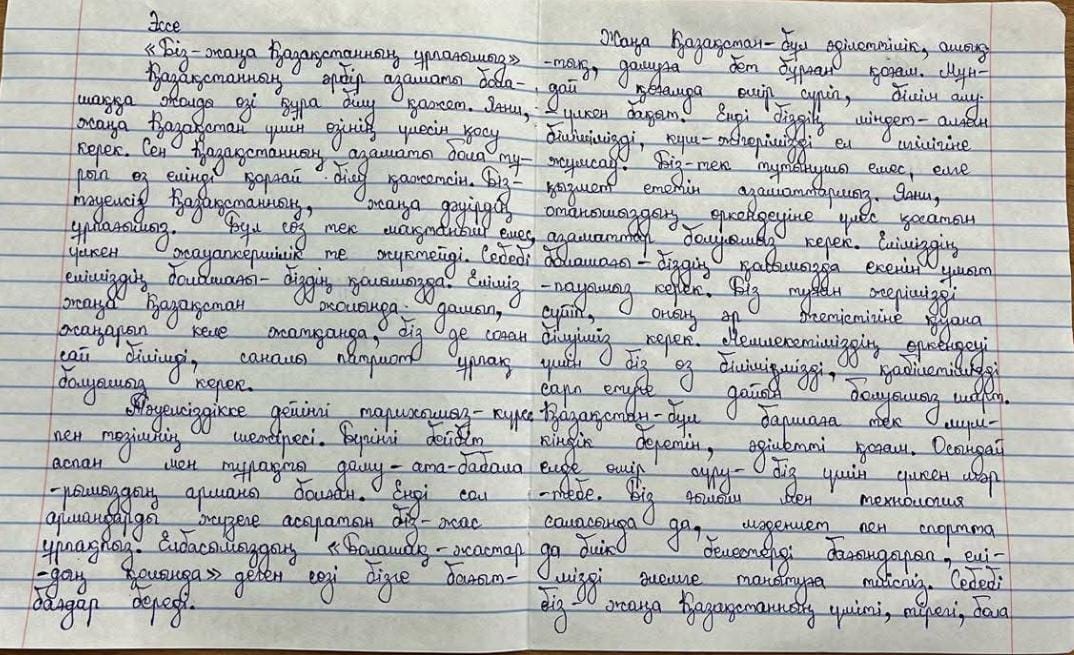 Эссе
«Біз-жаңа Қазақстанның ұрпағымыз»
Қазақстанның әрбір азаматы бола-
шаққа жолды өзі құра білу қажет. Яғни,
жаңа Қазақстан үшін өзінің үлесін қосу
керек. Сен Қазақстанның азаматы бола тұ-
рып өз еліңді қорғай білу қажетсің. Біз-
тәуелсіз Қазақстанның, жаңа дәуірдің
ұрпағымыз. Бұл сөз тек мақтаныш емес,
үлкен жауапкершілік те жүктейді. Себебі
еліміздің болашағы- біздің қолымызда. Еліміз
жаңа Қазақстан жолында дамып,
жаңарып келе жатқанда, біз де соған
сай білімді, саналы патриот ұрпақ
болуымыз керек.
Тәуелсіздікке дейінгі тарихымыз- күрес
пен төзімнің шежіресі. Бүгінгі бейбіт
аспан мен тұрақты даму- ата-бабала
-рымыздың арманы болған. Енді сол
армандарды жүзеге асыратын біз-жас
ұрпақпыз. Елбасымыздың «Болашақ - жастар
-дың қолында» деген сөзі бізге бағыт-
бағдар береді.
Жаңа Қазақстан- бұл әділеттілік, ашық
-тық, дамуға бет бұрған қоғам. Мұн-
дай қоғамда өмір сүріп, білім алу-
- үлкен бақыт. Енді біздің міндет- алған
білімімізді, күш-жігерімізді ел игілігіне
жұмсау. Біз-тек тұтынушы емес, елге
қызмет ететін азаматтармыз. Яғни,
отанымыздың өркендеуіне үлес қосатын
азаматтар болуымыз керек. Еліміздің
болашағы - біздің қолымызда екенін ұмыт
-пауымыз керек. Біз туған жерімізді
сүйіп, оның әр жетістігіне қуана
білуіміз керек. Мемлекетіміздің өркендеуі
үшін біз өз білімімізді, қабілетімізді
сарп етуге дайын болуымыз шарт.
Қазақстан- бұл баршаға тек мүм-
кіндік беретін, әділетті қоғам. Осындай
елде өмір сүру- біз үшін үлкен мәр
-тебе. Біз ғылым мен технология
саласында да, мәдениет пен спортта
да биік белестерді бағындырып, елі-
мізді әлемге танытуға тиіспіз. Себебі
біз - жаңа Қазақстанның үміті, тірегі, бола